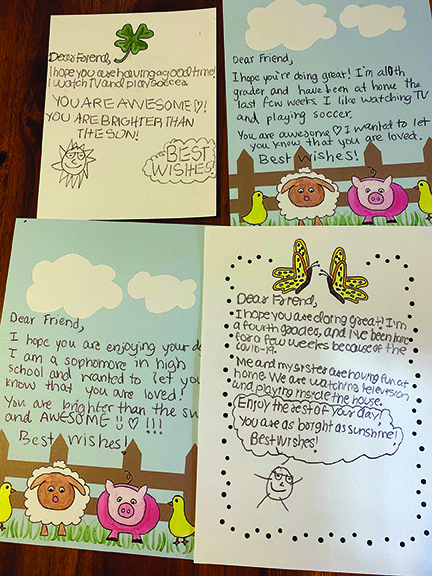 Dear Friend,
I hope you are having a good time!
I watch TV and play soccer.
YOU ARE AWESOME ♡!
YOU ARE BRIGHTER THAN
THE SUN!
BEST
WISHES!
Dear Friend,
I hope you're doing great! I'm a 10th
grader and have been at home the
last few weeks. I like watching TV
and playing soccer.
You are awesome ♡ I wanted to let
you know that you are loved.
Best Wishes!
Dear Friend,
I hope you are enjoying your
I am a sophomore in high
school and wanted to let you
know that you are loved!
You are brighter than the
and AWESOME !! ♡ !!!
Best Wishes!
Dear Friend,
I hope you are doing great! I'm
a fourth grader, and I've been home
for a few weeks because of the
covid-19.
Me and my sister are having fun at
home. We are watching television
and playing inside the house.
Enjoy the rest of your day!
you are as bright as sunshine!
Best wishes!